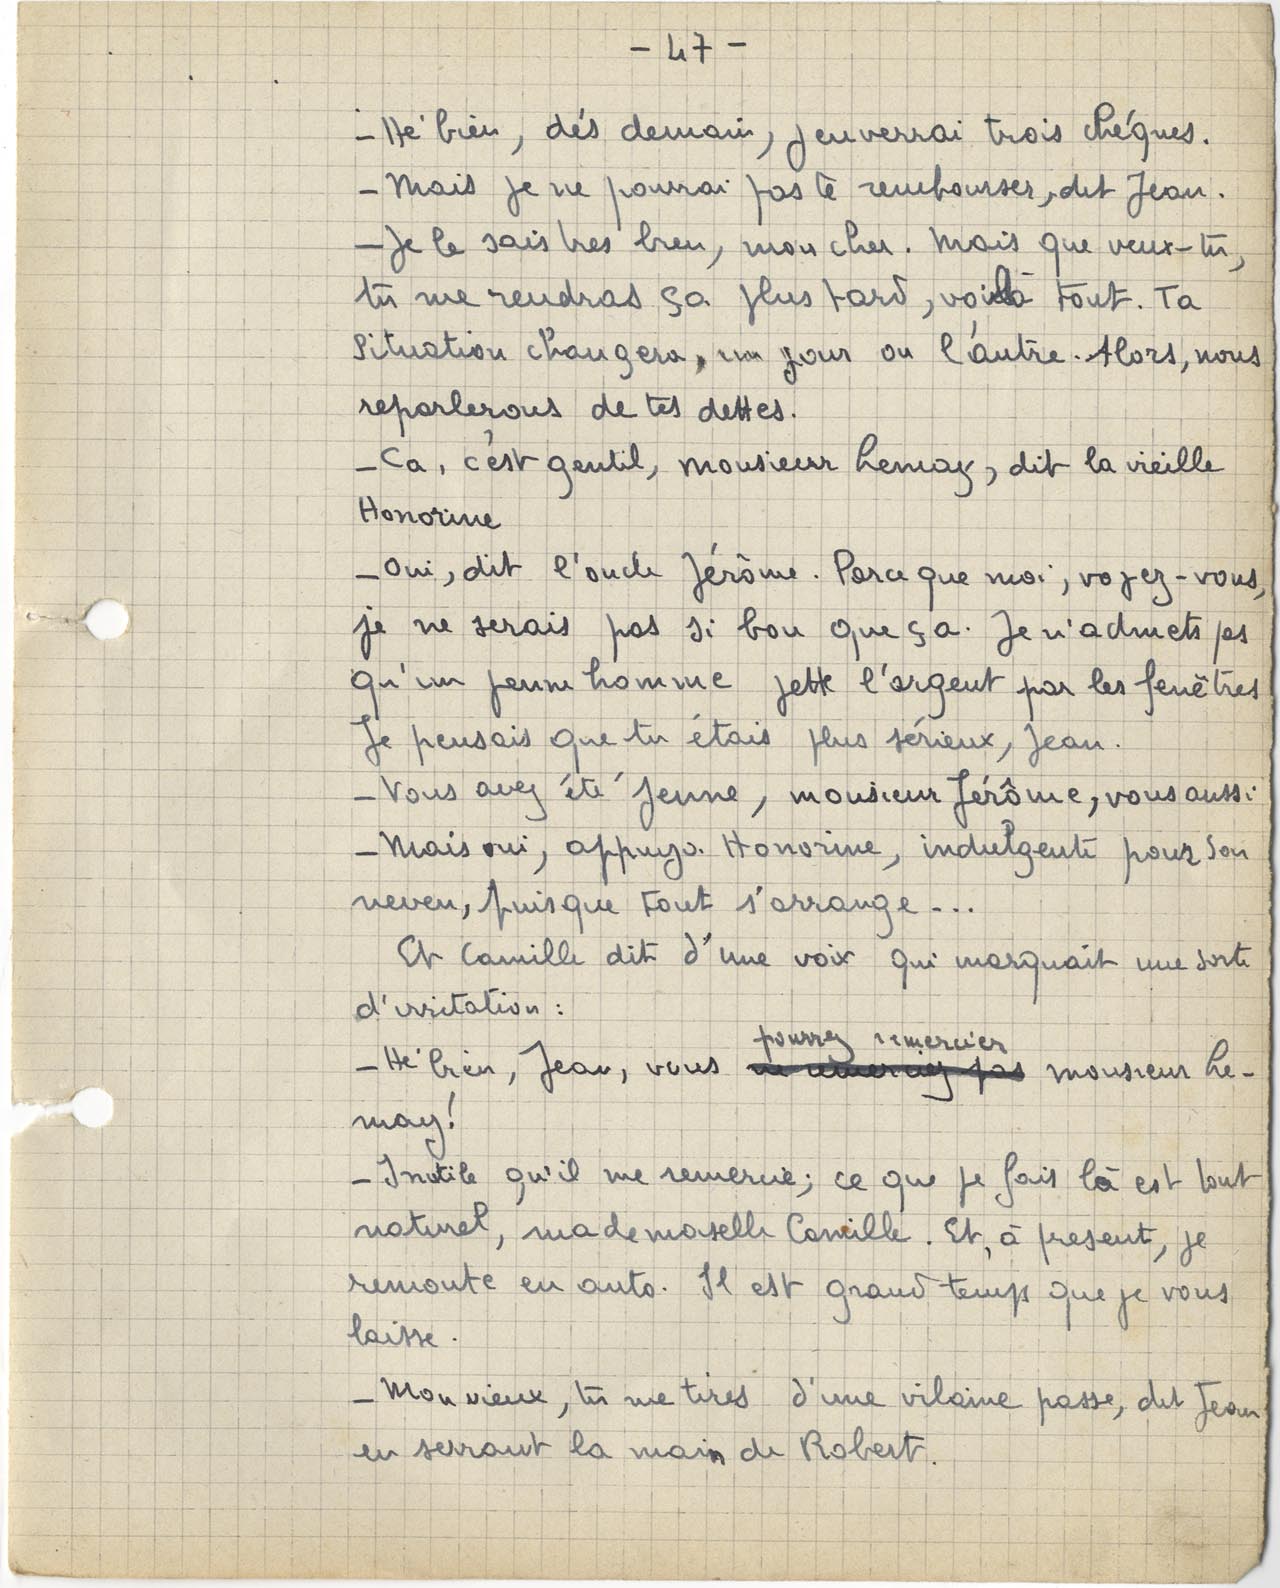 - 47 -
- Hé bien, dés demain, j'enverrai trois chéques.
- Mais je ne pourrai pas te rembourser, dit Jean.
- Je le sais tres bien, mon cher. Mais que veux-tu,
tu me rendras ça plus tard, voilà tout. Ta
situation changera, un jour ou l'autre. Alors, nous
reparlerons de tes dettes.
- Ca, c'est gentil, monsieur Lemay, dit la vieille
Honorine
- Oui, dit l'oncle Jérôme. Parce que moi, voyez-vous,
je ne serais pas si bon que ça. Je n'admets pas
qu'un jeune homme jette l'argent par les fenêtres
Je pensais que tu étais plus sérieux, Jean.
- Vous avez été jeune, monsieur Jérôme, vous aussi
- Mais oui, appuya Honorine, indulgente pour son
neveu, puisque tout s'arrange ...
Et Camille dit d'une voix qui marquait une sorte
d'irritation :
pourrez remercier
- Hé bien, Jean, vous ne remerciez pas monsieur Le-
may!
- Inutile qu'il me remercie; ce que je fais là est tout
naturel, mademoselle Camille. Et, à present, je
remonte en auto. Il est grand temps que je vous
laisse.
- Mon vieux, tu me tires d'une vilaine passe, dit Jean
en serrant la main de Robert.